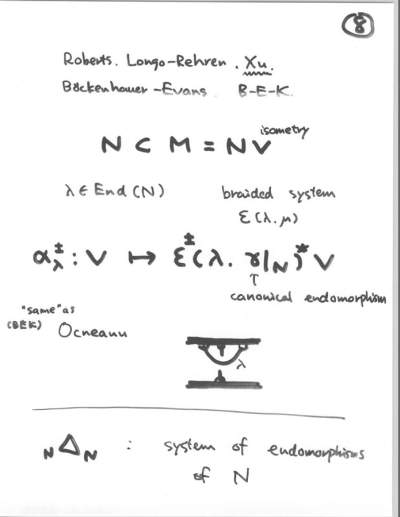 8
Roberts. Longo-Rehren. Xu.
Böckenhauer-Evans B-E-K
isometry
N ⊂ M = NV
λ ∈ End(N) braided system
ε(λ,μ)
α±λ : V ↦ ε±(λ, γ|N)* V
canonical endomorphism
"same" as
(BEK) Ocneanu
λ
NΔN : system of endomorphisms
of N